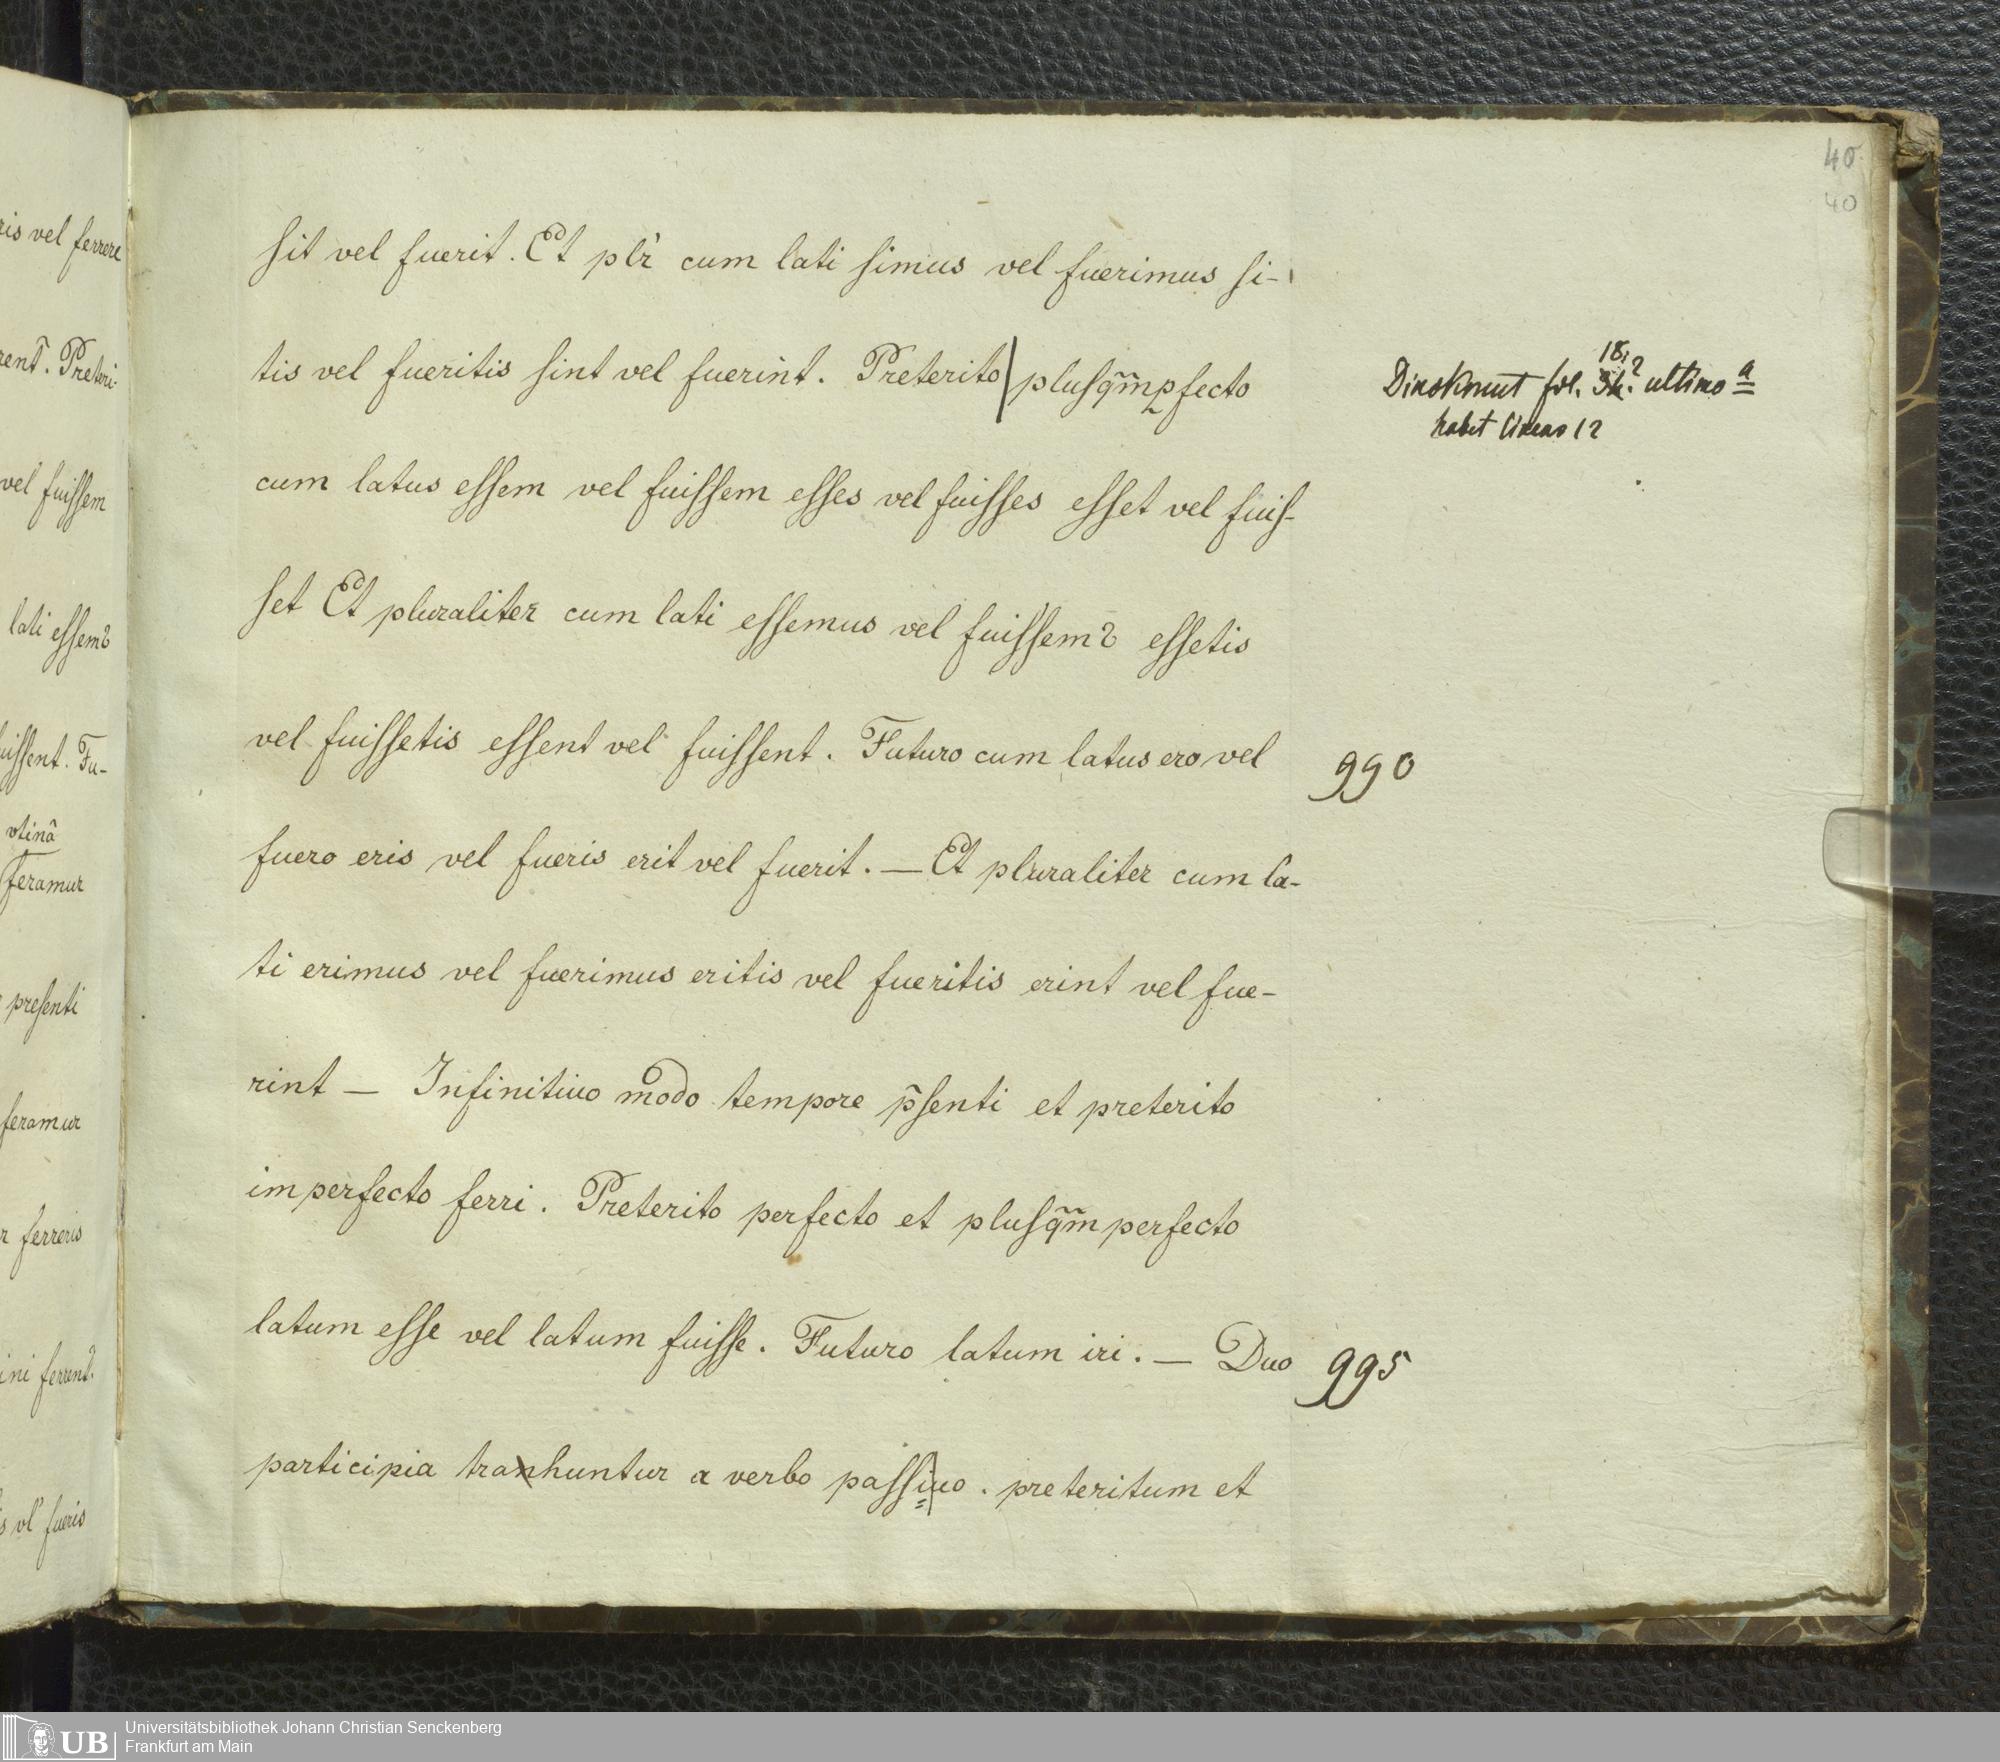 40
40
sit vel fuerit. Et plr̃ cum lati simus vel fuerimus si-
tis vel fueritis sint vel fuerint. Preterito | plusq̃m̃pfecto
18
Dinskmut fol. ultimo a
habet lineas 12
cum latus essem vel fuissem esses vel fuisses esset vel fuis-
set Et pluraliter cum lati essemus vel fuissemꝰ essetis
vel fuissetis essent vel fuissent. Futuro cum latus ero vel
990
fuero eris vel fueris erit vel fuerit. — Et pluraliter cum la-
ti erimus vel fuerimus eritis vel fueritis erint vel fue-
rint — Infinitiuo modo tempore p̃senti et preterito
imperfecto ferri. Preterito perfecto et plusq̃m̃ perfecto
latum esse vel latum fuisse. Futuro latum iri. — Duo
995
participia tranhuntur a verbo passiuo. preteritum et
ris vel ferrere
rent̃. Preteri-
vel fuissem
lati essemꝰ
uissent. Fu-
vtinã
feramur
presenti
feramur
r ferreris
ini ferrent̃.
s vl' fueris
UB Universitätsbibliothek Johann Christian Senckenberg
Frankfurt am Main